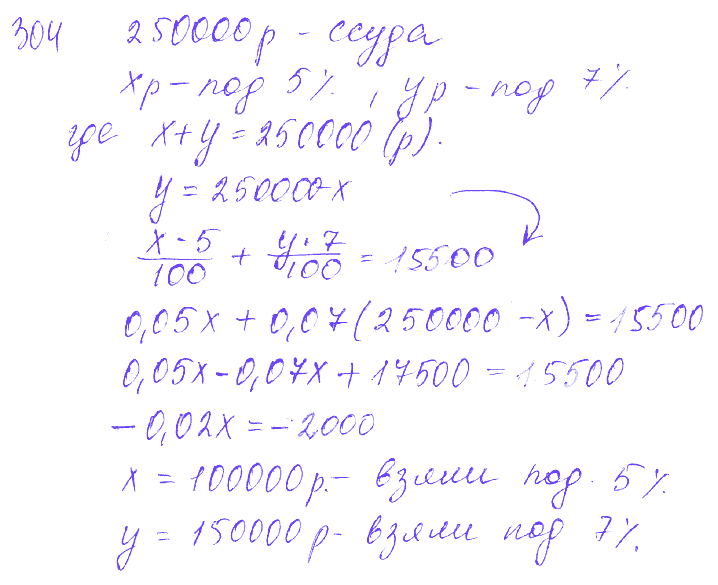 304 250000р - ссуда
хр - под 5%, ур - под 7%.
где х+у=250000(р).
у = 250000-х
х·5/100 + у·7/100 = 15500
0,05х + 0,07(250000-х) = 15500
0,05х-0,07х+17500 = 15500
-0,02х = -2000
х = 100000р.- взяли под 5%.
у = 150000р- взяли под 7%.